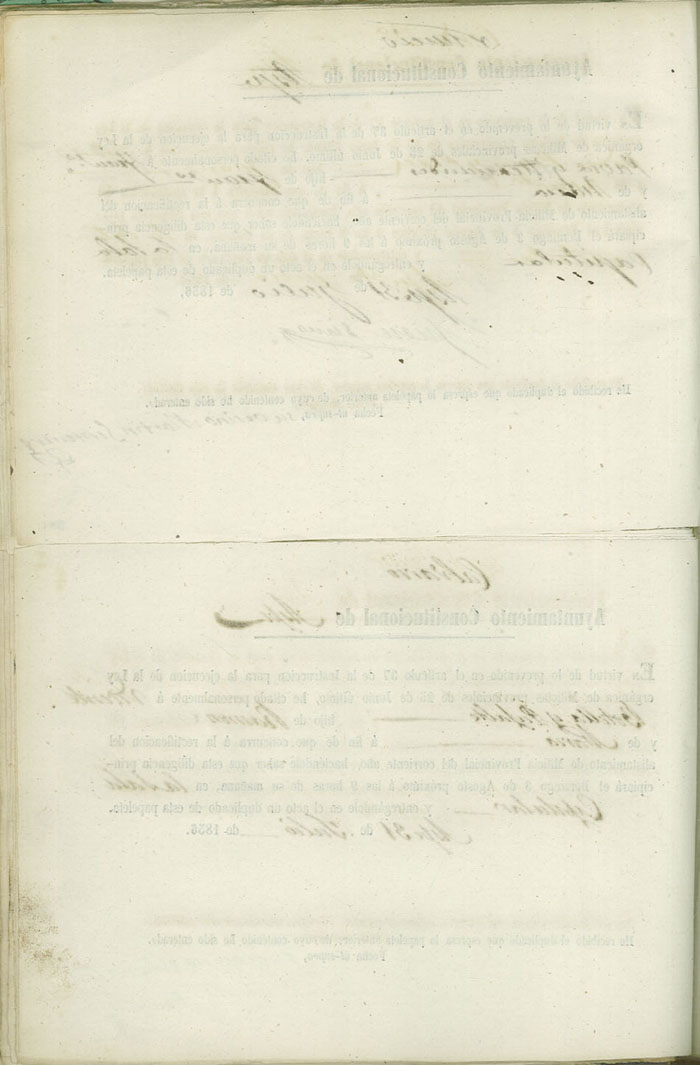 Ayuntamiento Constitucional de
En virtud de lo prevenido en el artículo 37 de la Instruccion para la ejecucion de la Ley
orgánica de Milicias provinciales de 25 de Junio último, he citado personalmente á
hijo de
y de á fin de que concurra á la rectificacion del
alistamiento de Milicia Provincial del corriente año, haciéndole saber que esta diligencia prin-
cipiará el Domingo 3 de Agosto próximo á las 9 horas de su mañana, en la Sala
Capitular y entregándole en el acto un duplicado de esta papeleta.
31 de Julio de 1856.
He recibido el duplicado que espresa la papeleta anterior, de cuyo contenido he sido enterado.
Fecha ut-supra,
Ayuntamiento Constitucional de
En virtud de lo prevenido en el artículo 37 de la Instruccion para la ejecucion de la Ley
orgánica de Milicias provinciales de 25 de Junio último, he citado personalmente á Vicente
hijo de
y de Maria á fin de que concurra á la rectificacion del
alistamiento de Milicia Provincial del corriente año, haciéndole saber que esta diligencia prin-
cipiará el Domingo 3 de Agosto próximo á las 9 horas de su mañana, en la Sala
Capitular y entregándole en el acto un duplicado de esta papeleta.
31 de Julio de 1856.
He recibido el duplicado que espresa la papeleta anterior, de cuyo contenido he sido enterado.
Fecha ut-supra,